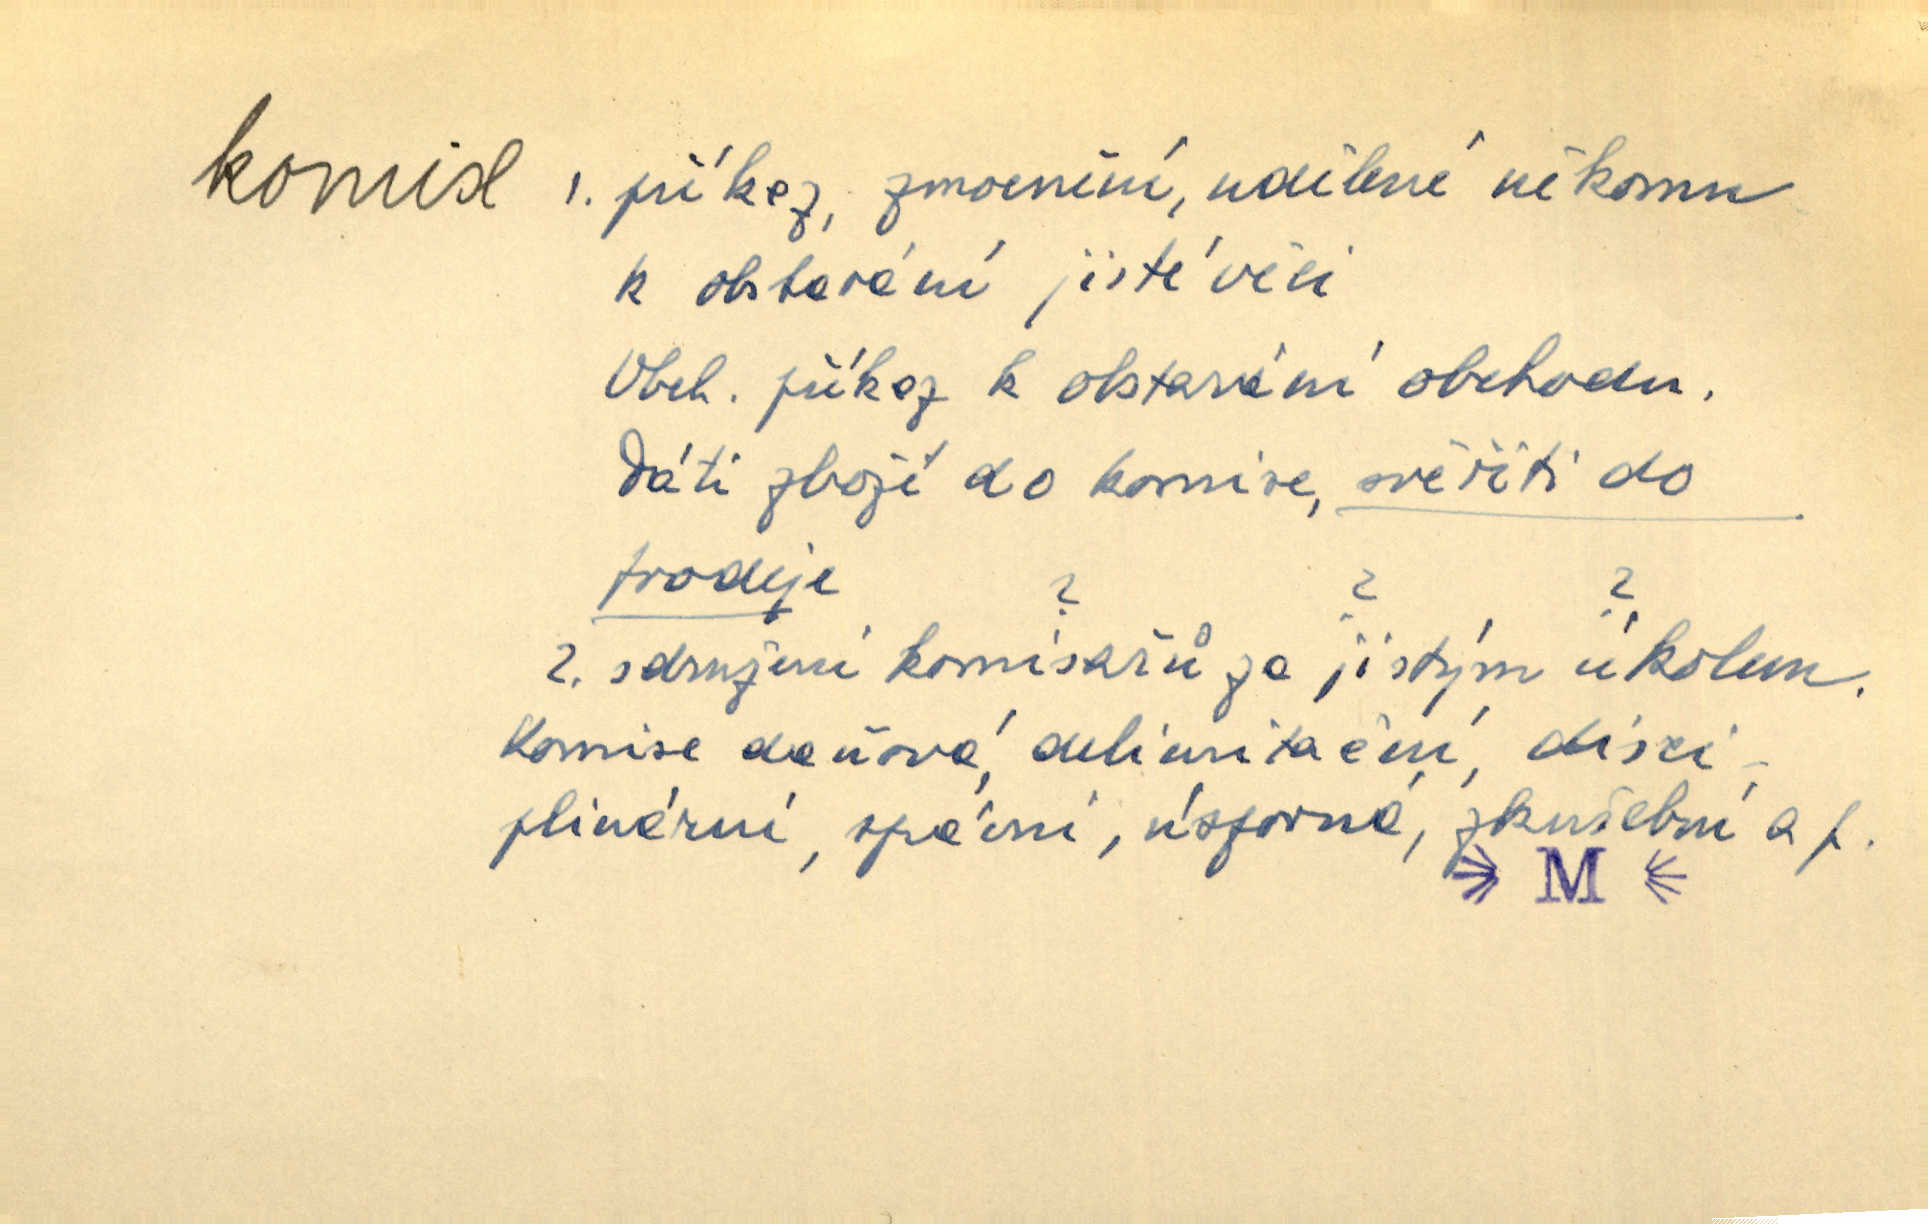 komise 1. příkaz, zmocnění, udělené někomu
k obstarání jisté věci
Obch. příkaz k obstarání obchodu.
Dáti zboží do komise, svěřiti do
prodeje
? ? ?
2. sdružení komisařů za jistým úkolem.
Komise daňová, delimitační, disci-
plinární, spávní, úsporná, zkušební a p.
M